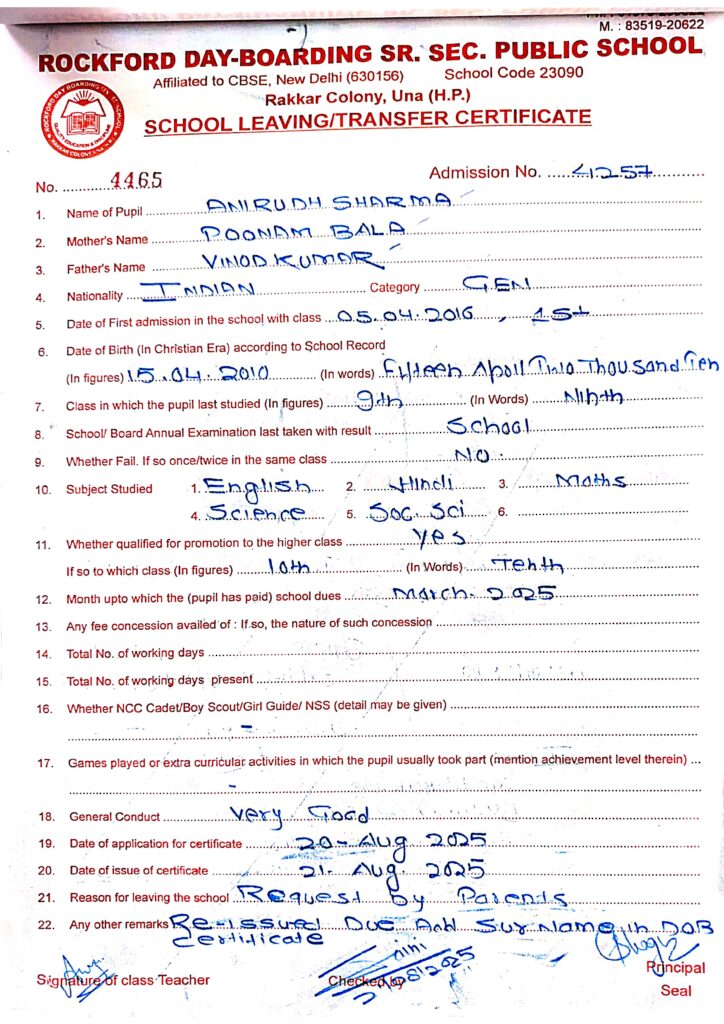 M. : 83519-20622
ROCKFORD DAY-BOARDING SR. SEC. PUBLIC SCHOOL
Affiliated to CBSE, New Delhi (630156) School Code 23090
Rakkar Colony, Una (H.P.)
SCHOOL LEAVING/TRANSFER CERTIFICATE
No. 4465 Admission No. 4257
1. Name of Pupil ANIRUDH SHARMA
2. Mother's Name POONAM BALA
3. Father's Name VINOD KUMAR
4. Nationality INDIAN Category GEN
5. Date of First admission in the school with class 05.04.2016, 1st
6. Date of Birth (In Christian Era) according to School Record
(In figures) 15.04.2010 (In words) Fifteen April Two Thousand Ten
7. Class in which the pupil last studied (In figures) 9th (In Words) Ninth
8. School/ Board Annual Examination last taken with result School
9. Whether Fail. If so once/twice in the same class NO
10. Subject Studied 1. English 2. Hindi 3. Maths
4. Science 5. Soc. Sci 6.
11. Whether qualified for promotion to the higher class Yes
If so to which class (In figures) 10th (In Words) Tenth
12. Month upto which the (pupil has paid) school dues March. 2025
13. Any fee concession availed of : If so, the nature of such concession
14. Total No. of working days
15. Total No. of working days present
16. Whether NCC Cadet/Boy Scout/Girl Guide/ NSS (detail may be given)
17. Games played or extra curricular activities in which the pupil usually took part (mention achievement level therein)
18. General Conduct Very Good
19. Date of application for certificate 20-Aug 2025
20. Date of issue of certificate 21-Aug. 2025
21. Reason for leaving the school Request by Parents
22. Any other remarks Re-issued Due Add Sur Name in DOB
Certificate
Signature of class Teacher Checked by Principal
Seal